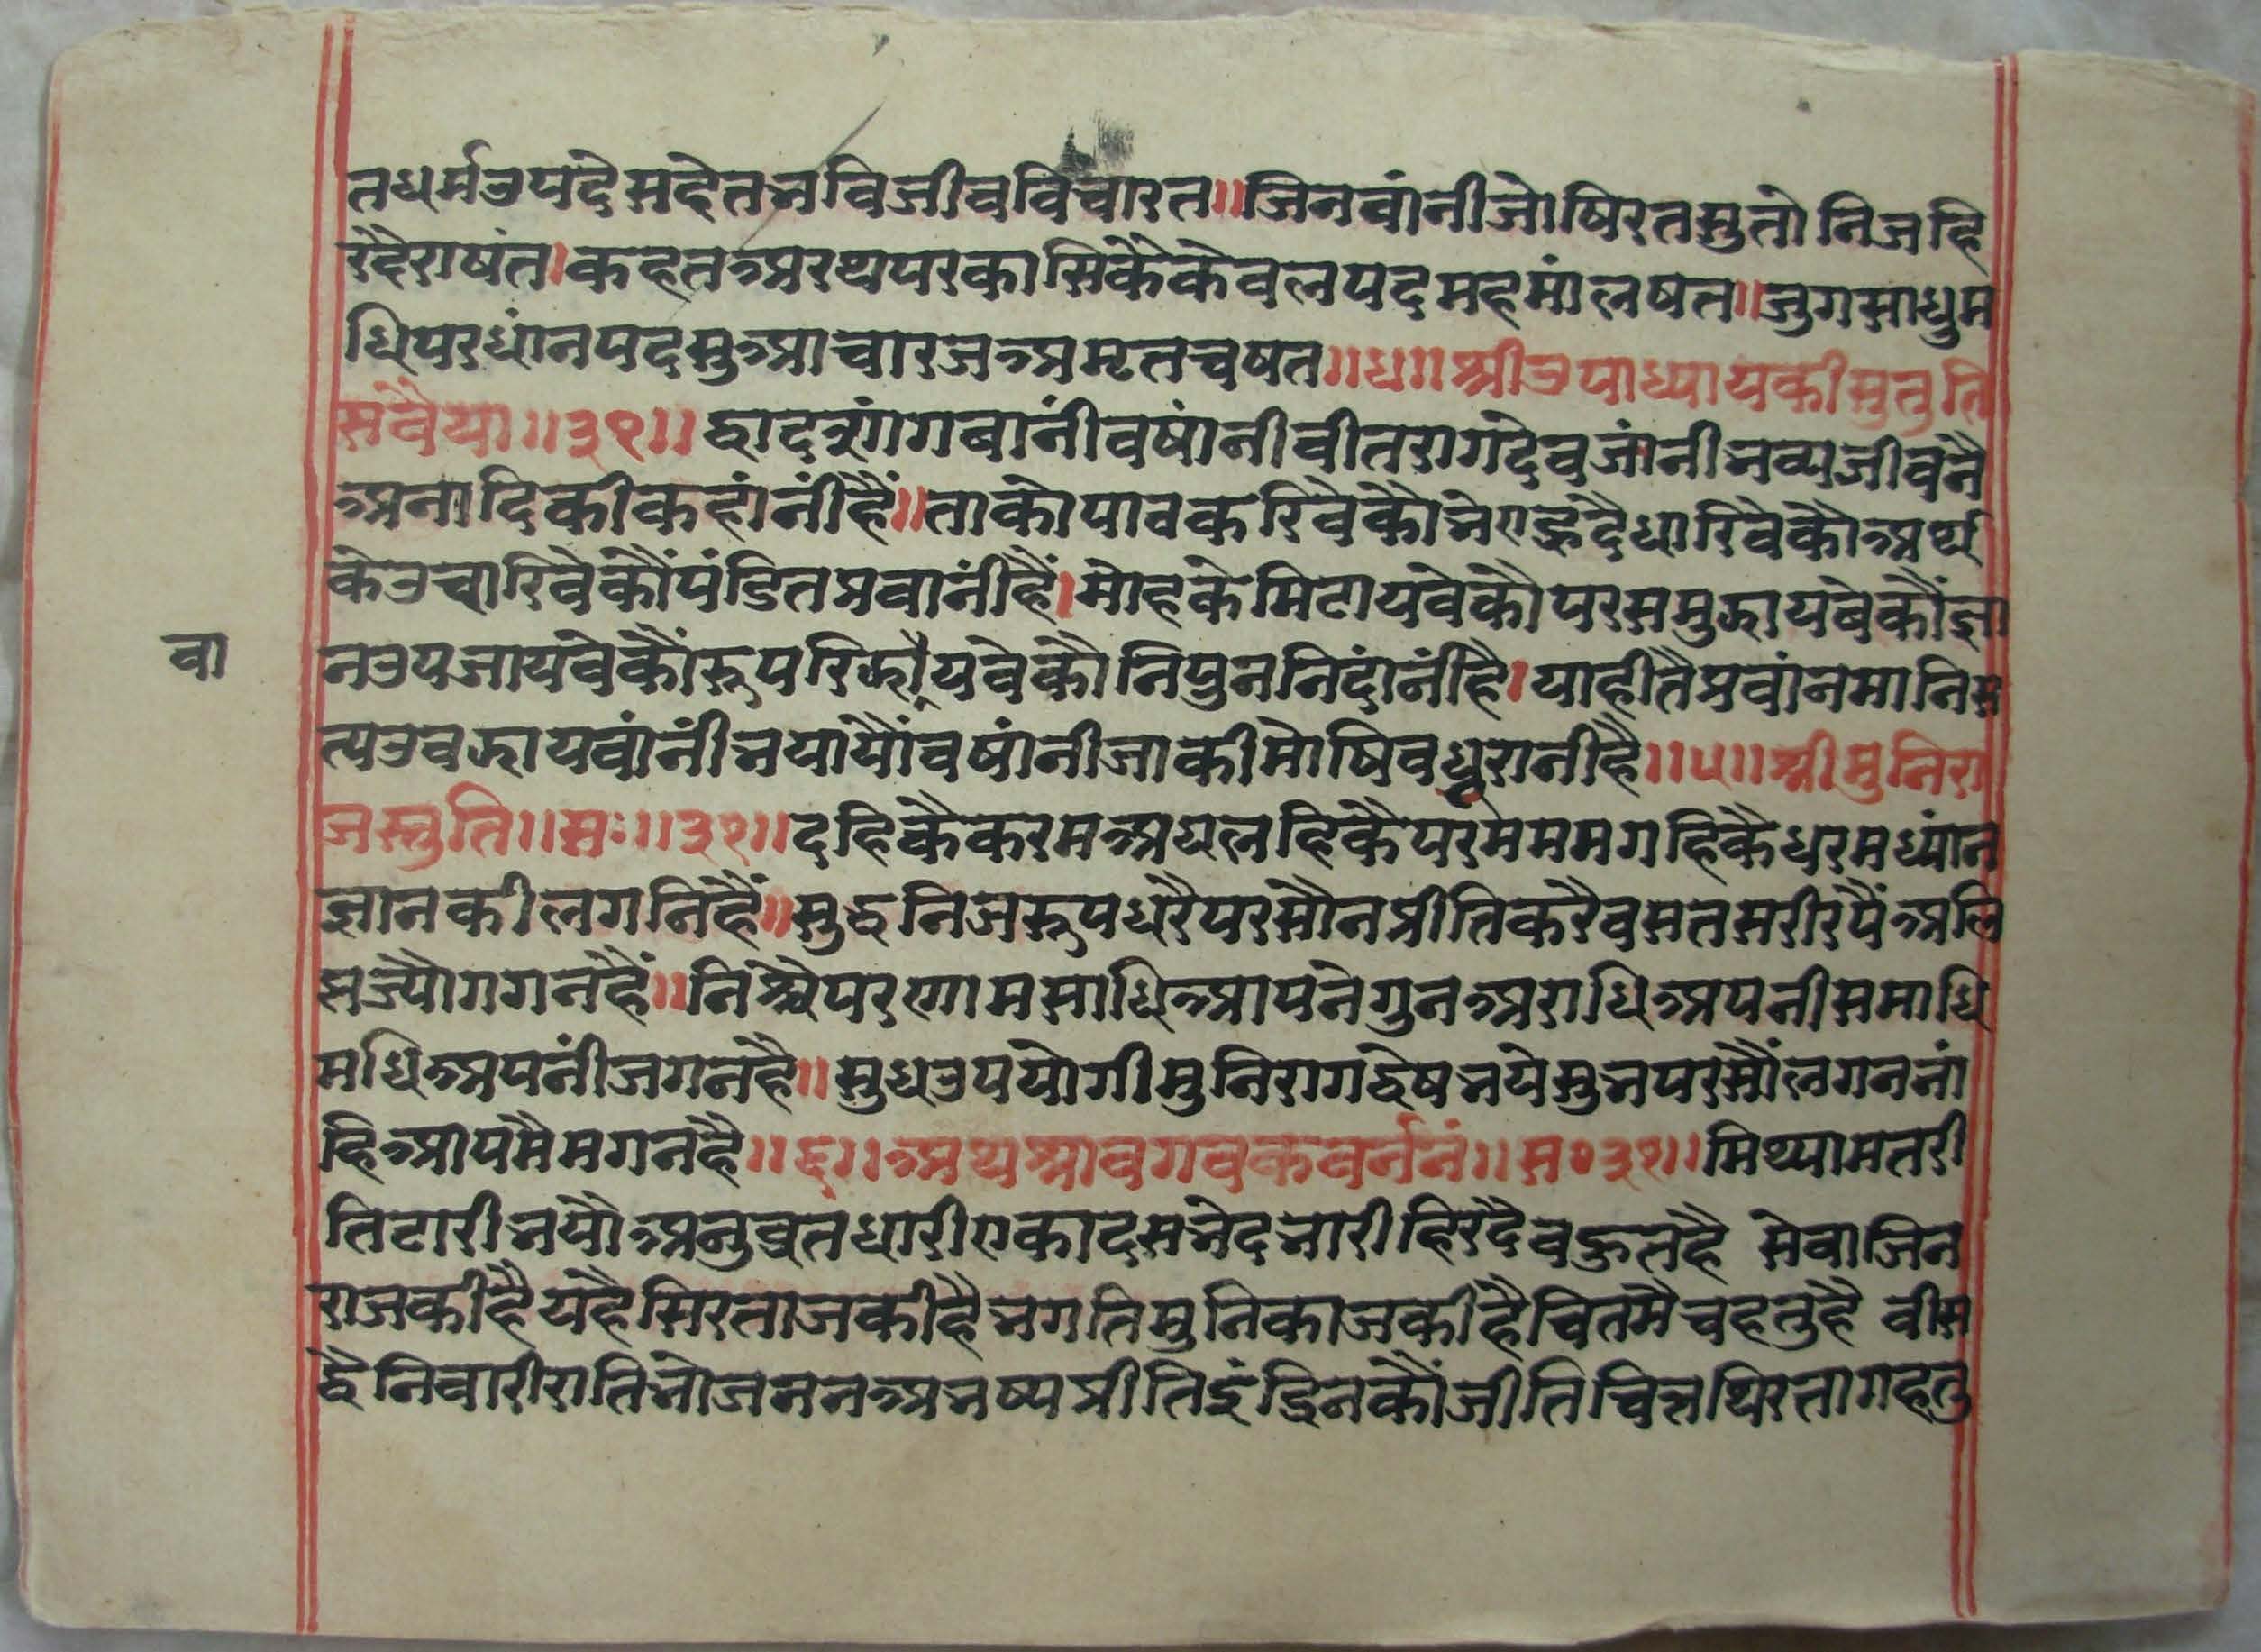 तधर्मउपदेसहेतभविजीवविचारत॥जिनवांनीजोषिरतसुतोनिजहि
रदैराषंत।कहतअरथपरकासिकैकेवलपदमहमांलषत॥जुगसाधुम
धिपरधांनपदसुआचारजअमृतचषत॥४॥श्रीउपाध्यायकीसुतुति
सवैया॥३१॥द्वादशांगबांनीवषांनीवीतरागदेवजांनीभव्यजीवनै
अनादिकीकहांनीहैं॥ताकोपावकरिवैकौभेएहृदैधारिवैकौअर्थ
केउचारिवेकौंपंडितप्रवानींहैं।मोहकेमिटायवेकौपरसमुझायबेकौंज्ञा
वा
नउपजायवेकौंरूपरिझायवेकौनिपुननिदांनींहै।याहीतैप्रवांनमानिस
त्यउवझायवांनींभयायौंवषांनीजाकीमोषिवधूरानीहै॥५॥श्रीमुनिरा
जस्तुति॥सः॥३१॥दहिकैकरमअघलहिकैपरममगगहिकैधरमध्यांन
ज्ञानकीलगनिहैं॥सुद्धनिजरूपधरैपरसौंनप्रीतिकरैवसतसरीरपैंअलि
प्तज्यौगगनहैं॥निश्चैपरणामसाधिआपनेगुनअराधिअपनीसमाधि
मधिअपनींजगनहै॥सुधउपयोगीमुनिरागद्वेषभयेसुन्नपरसौंलगननां
हिआपमैमगनहै॥६॥अथश्रावगवकवर्ननं॥स०३१॥मिथ्यामतरी
तिटारीभयौअनुव्रतधारीएकादसभेदभारीहिरदैवहतुहै सेवाजिन
राजकीहैयहैसिरताजकीहैभगतिमुनिकाजकीहैचितमैचहतुहै वीस
द्वैनिवारीरातिभोजननअभष्यप्रीतिइंद्रिनकौंजीतिचित्तथिरतागहतु